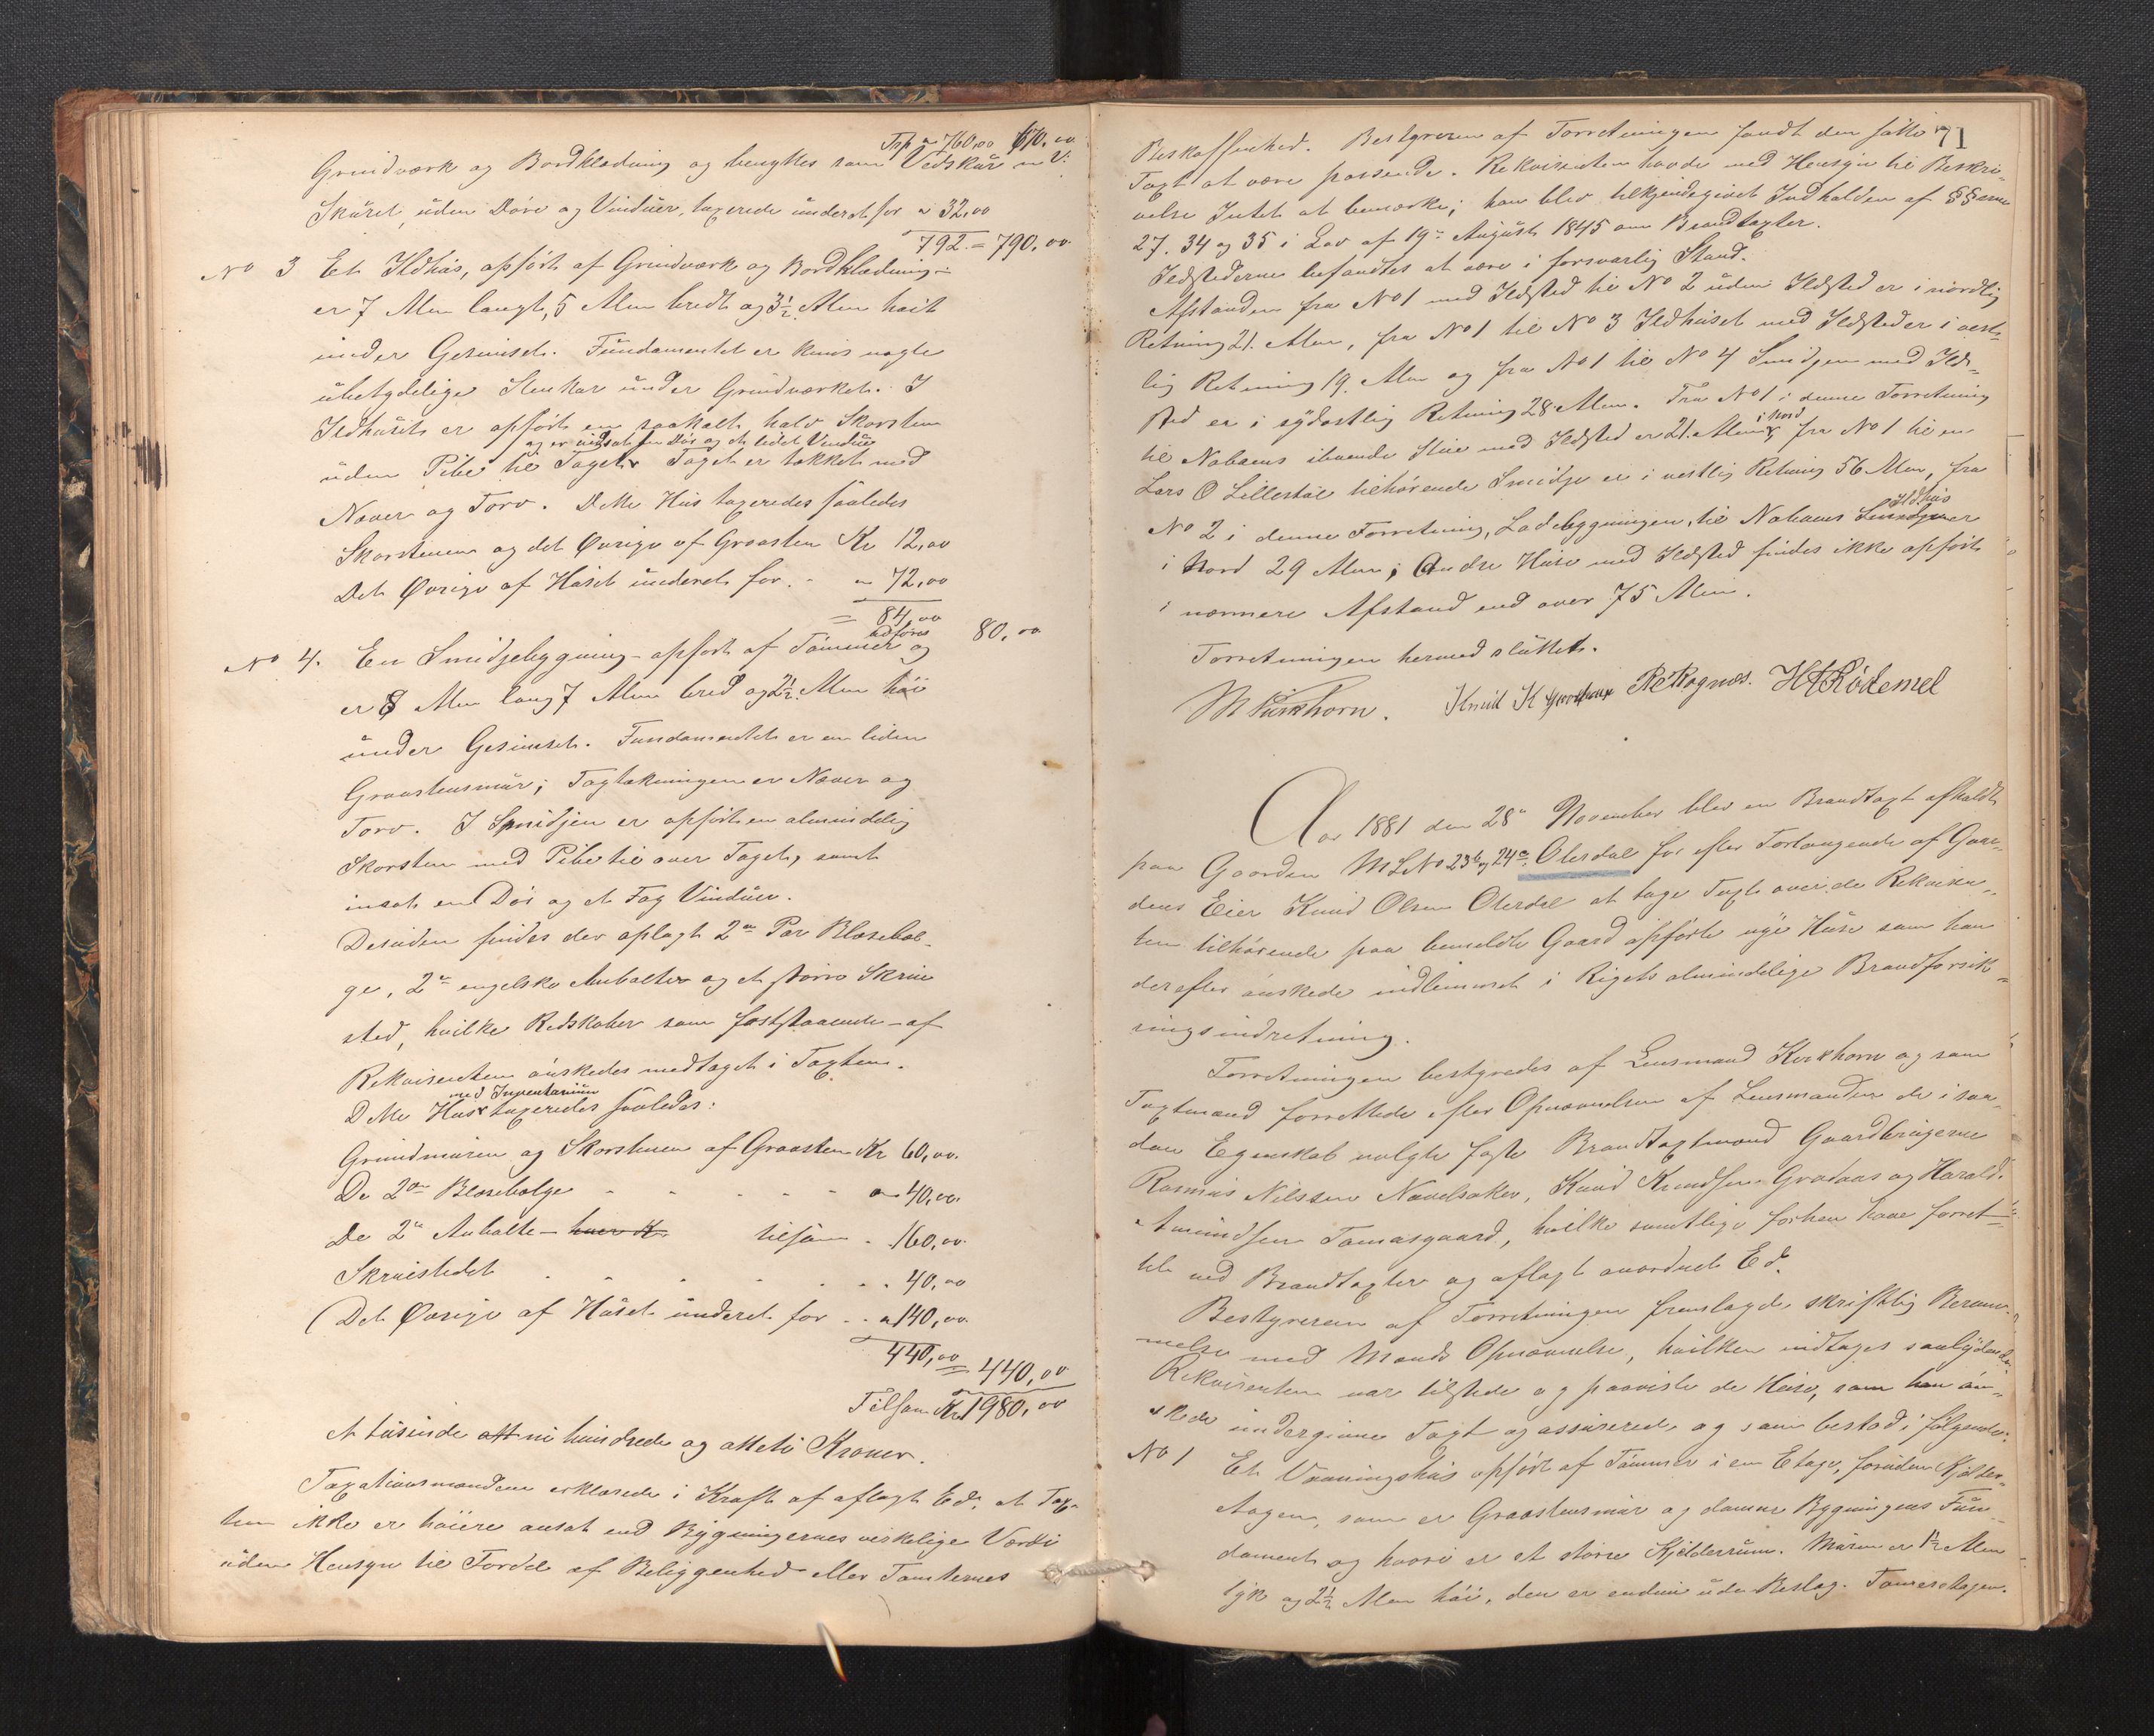 Trp " 760,00 670,00
Grindværk og Bordklædning og benyttes som Vedskur
Skuret, uden Døre og Vinduer, taxerede underet for " 32,00
792. = 790,00
No 3 Et Ildhus, opført af Grindværk og Bordklædning -
er 7 Alen langt, 5 Alen bredt og 3½ Alen høit
under Gesimset. Fundamentet er kuns nogle
ubetydelige Stenkar under Grindværket. I
Ildhuset er opført en saakalt halv Skorsten
og er indsat en Dør og et lidet Vindue
uden Pibe til Taget. Taget er tækket med
Næver og Torv. Dette Hus taxeredes saaledes
Skorstenen og det Øvrige af Graasten Kr 12,00
Det Øvrige af Huset underet for - " 72,00
= 84,00
udføres 80,00
No 4. En Smidjebygning - opført af Tømmer og
er 8 Alen lang 7 Alen bred og 2½ Alen høi
under Gesimset. Fundamentet er en liden
Graastensmur; Tagtækningen er Næver og
Torv. I Smidjen er opført en almindelig
Skorsten med Pibe til over Taget, samt
insat en Dør og et Fag Vinduer.
Desuden findes der oplagt 2de Par Blæsebæl-
ge, 2de engelske Ambalter og et større Skrue
sted, hvilke Redskaber som fastststaaende - af
Rekvisenten ønskedes medtaget i Taxten.
med Inventarium
Dette Hus taxeredes saaledes:
Grundmuren og Skorstenen af Graasten Kr 60,00.
De 2de Blæsebælge - - - - - " 40,00.
De 2de Anbalte - hver Kr tilsam - 160,00
Skruestedet - - - - - - 40,00
Det Øvrige af Huset underet for - - " 140,00.
440,00 = 440,00
Tilsam Kr 1980,00
et tusinde ott ni hundrede og otteti Kroner.
Taxationsmændene erklærede i Kraft af aflagt Ed, at Tax-
ten ikke er høiere ansat end Bygningernes virkelige Værdi
uden Hensyn til Fordel af Beliggenhed eller Tomternes
71
Beskaffenhed. Bestyreren af Forretningen fandt den satte
Taxt at være passende. Rekvisenten havde med Hensyn til Beskri-
velse Intet at bemærke; han blev tilkjendegivet Indholden af §§erne
27. 34 og 35 i Lov af 19de August 1845 om Brandtaxter.
Ildstederne befandtes at være i forsvarlig Stand.
Afstanden fra No 1 med Ildsted til No 2 uden Ildsted er i nordlig
Retning 21. Alen, fra No 1 til No 3 Ildhuset med Ildsted er i vest-
lig Retning 19. Alen og fra No 1 til No 4 Smidjen med Ild-
sted er i sydøstlig Retning 28 Alen. Fra No 1 i denne Forretning
i Nord
til Naboens iboende Stue med Ildsted er 21. Alen, fra No 1 til en
Lars O Lillestøl tilhørende Smidje er i vestlig Retning 56 Alen, fra
Ildhus
No 2 i denne Forretning, Ladebygningen, til Naboens Smidje er
i Nord 29 Alen; Andre Huse med Ildsted findes ikke opført
i nærmere Afstand end over 75 Alen.
Forretningen hermed sluttet.
M Kirkhorn. Knud K ReRognæs. H A Rødemel
Aar 1881 den 28de November blev en Brandtaxt afholdt
paa Gaarden MLNo 23b og 24a Olerdal for efter Forlangende af Gaar-
dens Eier Knud Olsen Olerdal at tage Taxt over de Rekvisen-
ten tilhørende paa bemeldte Gaard opførte nye Huse som han
derefter ønskede indlemmet i Rigets almindelige Brandforsik-
ringsindretning.
Forretningen bestyredes af Lensmand Kirkhorn og som
Taxtmænd forrettede efter Opnævnelsen af Lensmanden de i saa-
dan Egenskab valgte faste Brandtaxtmænd Gaardbrugerne
Rasmus Nilssen Navelsaker, Knud Knudsen Gravaas og Harald
Amundsen Tomasgaard, hvilke samtlige forhen have forret-
tet ved Brandtaxter og aflagt anordnet Ed.
Bestyreren af Forretningen fremlagde skriftlig Beram-
melse med Mænds Opnævnelse, hvilken indtages saalydende.
Rekvirenten var tilstede og paaviste de Huse, som han øn-
skede undergivne Taxt og assureret, og som bestod i følgende:
No 1 Et Vaaningshus opført af Tømmer i en Etage, foruden Kjelder-
etagen, som er Graastensmur og danner Bygningens Fun-
dament og hvori er et større Kjelderrum. Muren er 1½ Alen
tyk og 2½ Alen høi, den er endnu uden Beslag. Tømeretagen.